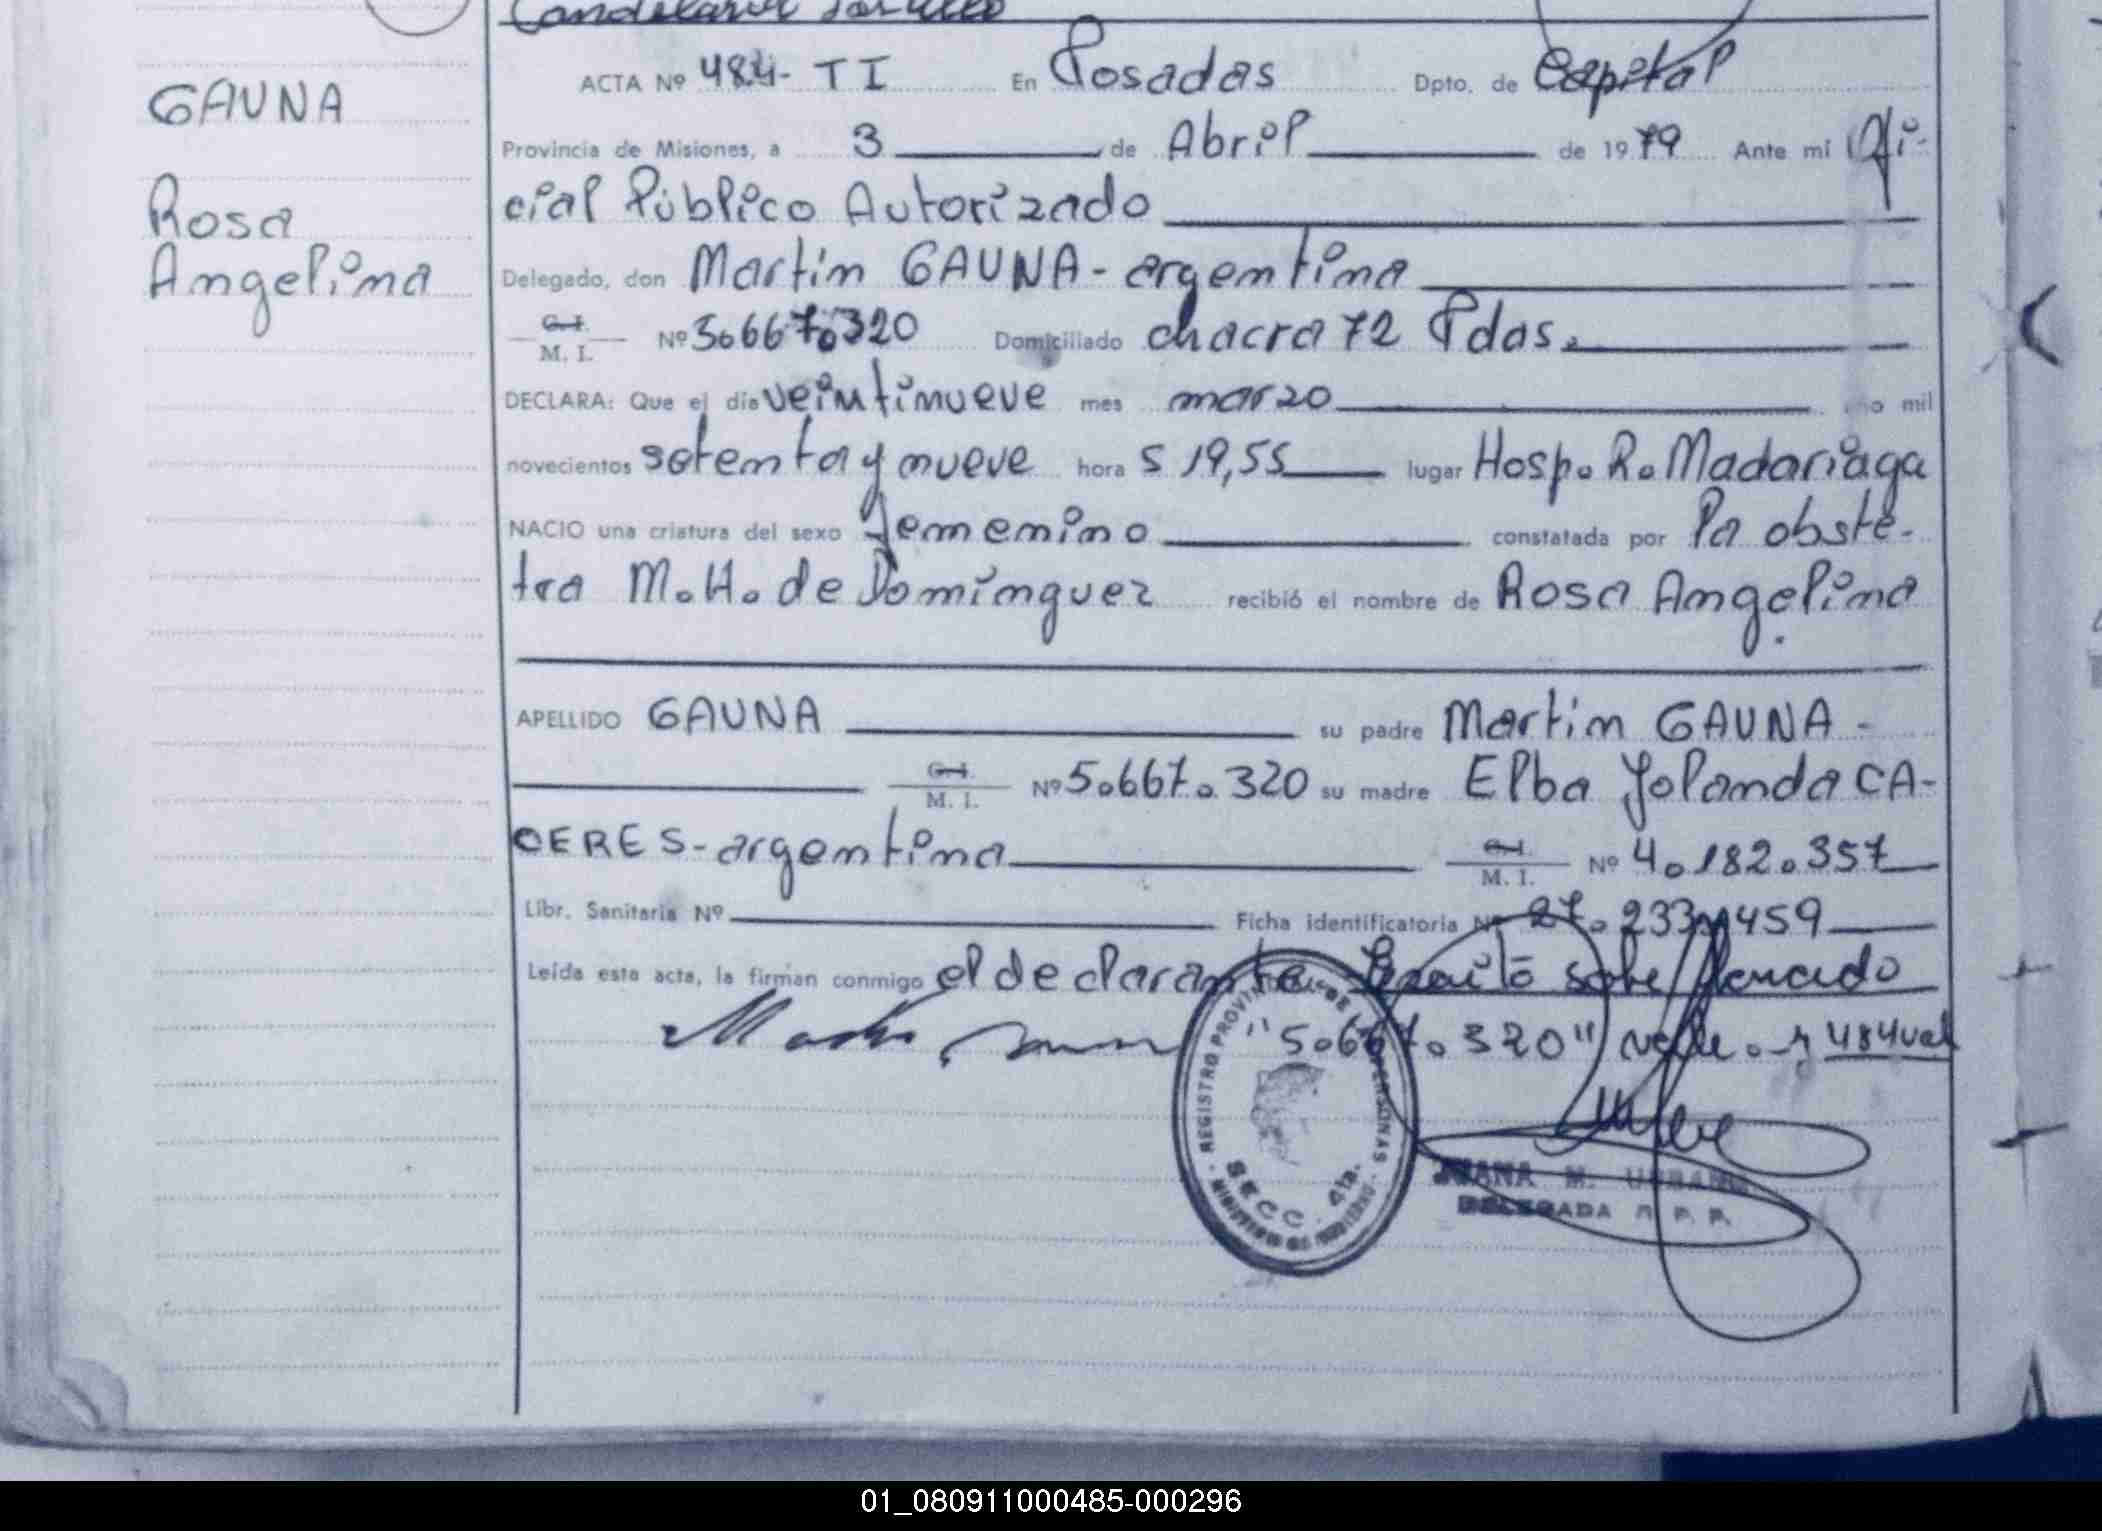 GAUNA
Rosa
Angelina
ACTA Nº 484- TI En Posadas Dpto. de Capital
Provincia de Misiones, a 3 de Abril de 1979 Ante mi Ofi-
cial Público Autorizado
Delegado, don Martín GAUNA - argentina
C. I.
M. I. Nº 5.667.320 Domiciliado chacra 72 Pdas.
DECLARA: Que el día veintinueve mes marzo año mil
novecientos setenta y nueve hora s 19,55 lugar Hosp. R. Madariaga
NACIO una criatura del sexo femenino constatada por la obste-
tra M. H. de Domínguez recibió el nombre de Rosa Angelina
APELLIDO GAUNA su padre Martín GAUNA -
C. I.
M. I. Nº 5.667.320 su madre Elba Yolanda CA-
CERES - argentina C. I.
M. I. Nº 4.182.357
Libr. Sanitaria Nº Ficha identificatoria Nº 27.233.459
Leída esta acta, la firman conmigo el declarante
"5.667.320" vale. - y 484 val
REGISTRO PROVINCIAL DE LAS PERSONAS
SECC. 4ta.
MINISTERIO DE GOBIERNO
JUANA M. URBANO
DELEGADA R. P. P.
01_080911000485-000296